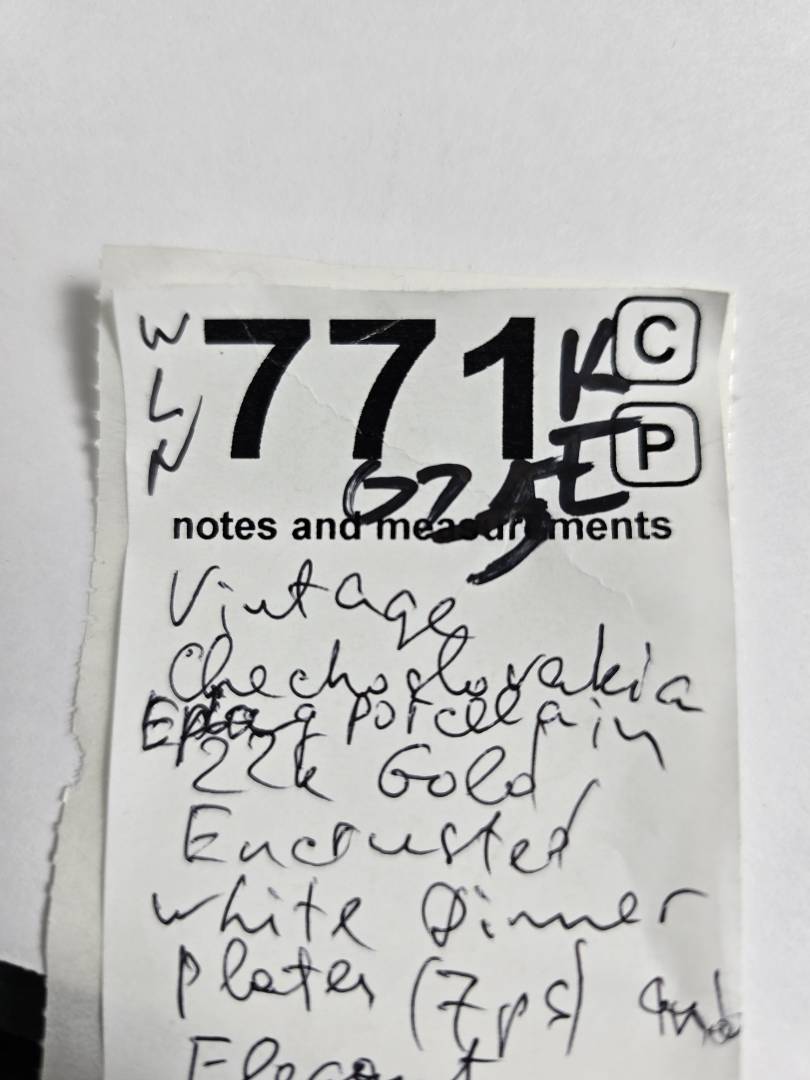 W 771 K C
L E P
N
notes and measurements
Vintage
Chechoslovakia
Epiag porcelain
22k Gold
Encrusted
white Dinner
plates (7ps) and
Elegant